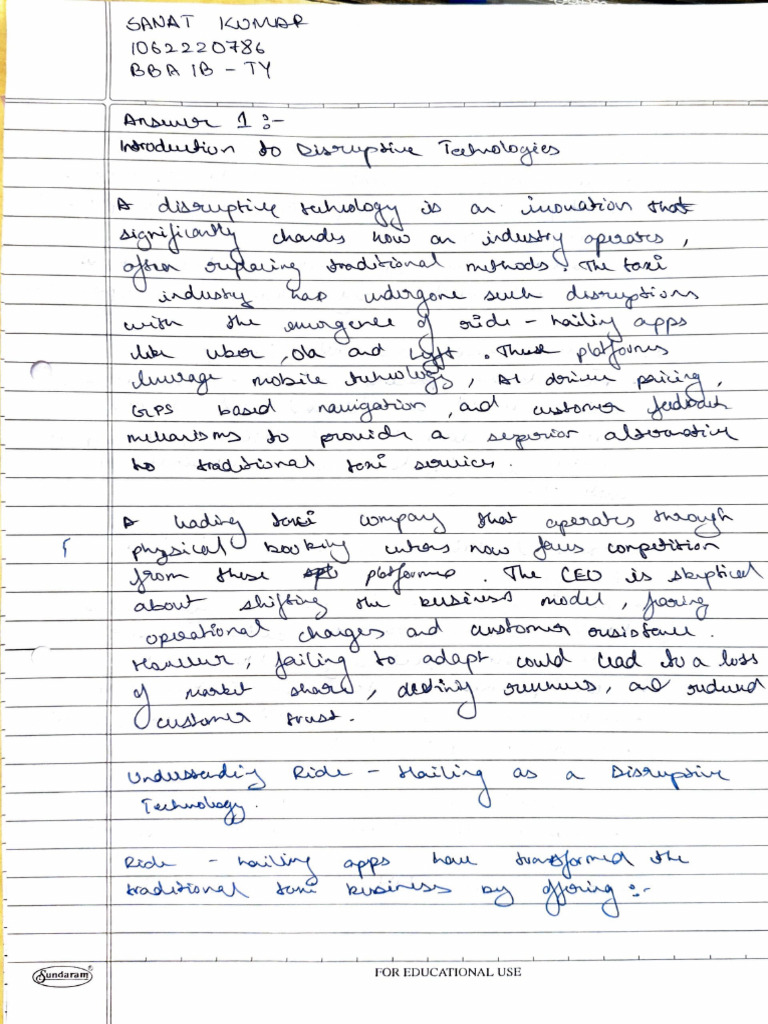 SANAT KUMAR
1062220786
BBA IB - TY
Answer 1 :-
Introduction to Disruptive Technologies
A disruptive technology is an inovation that
significantly chandes how an industry operates,
often replacing traditional methods. The taxi
industry has undergone such disruptions
with the emergence of ride - hailing apps
like uber, ola and Lyft. These platforms
leverage mobile technology, AI driven pricing,
GPS based navigation, and customer feedback
mechanisms to provide a superior alternative
to traditional taxi services.
A leading taxi company that operates through
physical booking centers now faces competition
from these platforms. The CEO is skeptical
about shifting the business model, fearing
operational changes and customer resistance.
However, failing to adapt could lead to a loss
of market share, declining revenues, and reduced
customer trust.
Understanding Ride - Hailing as a Disruptive
Technology.
Ride - hailing apps have transformed the
traditional taxi business by offering :-
Sundaram
FOR EDUCATIONAL USE